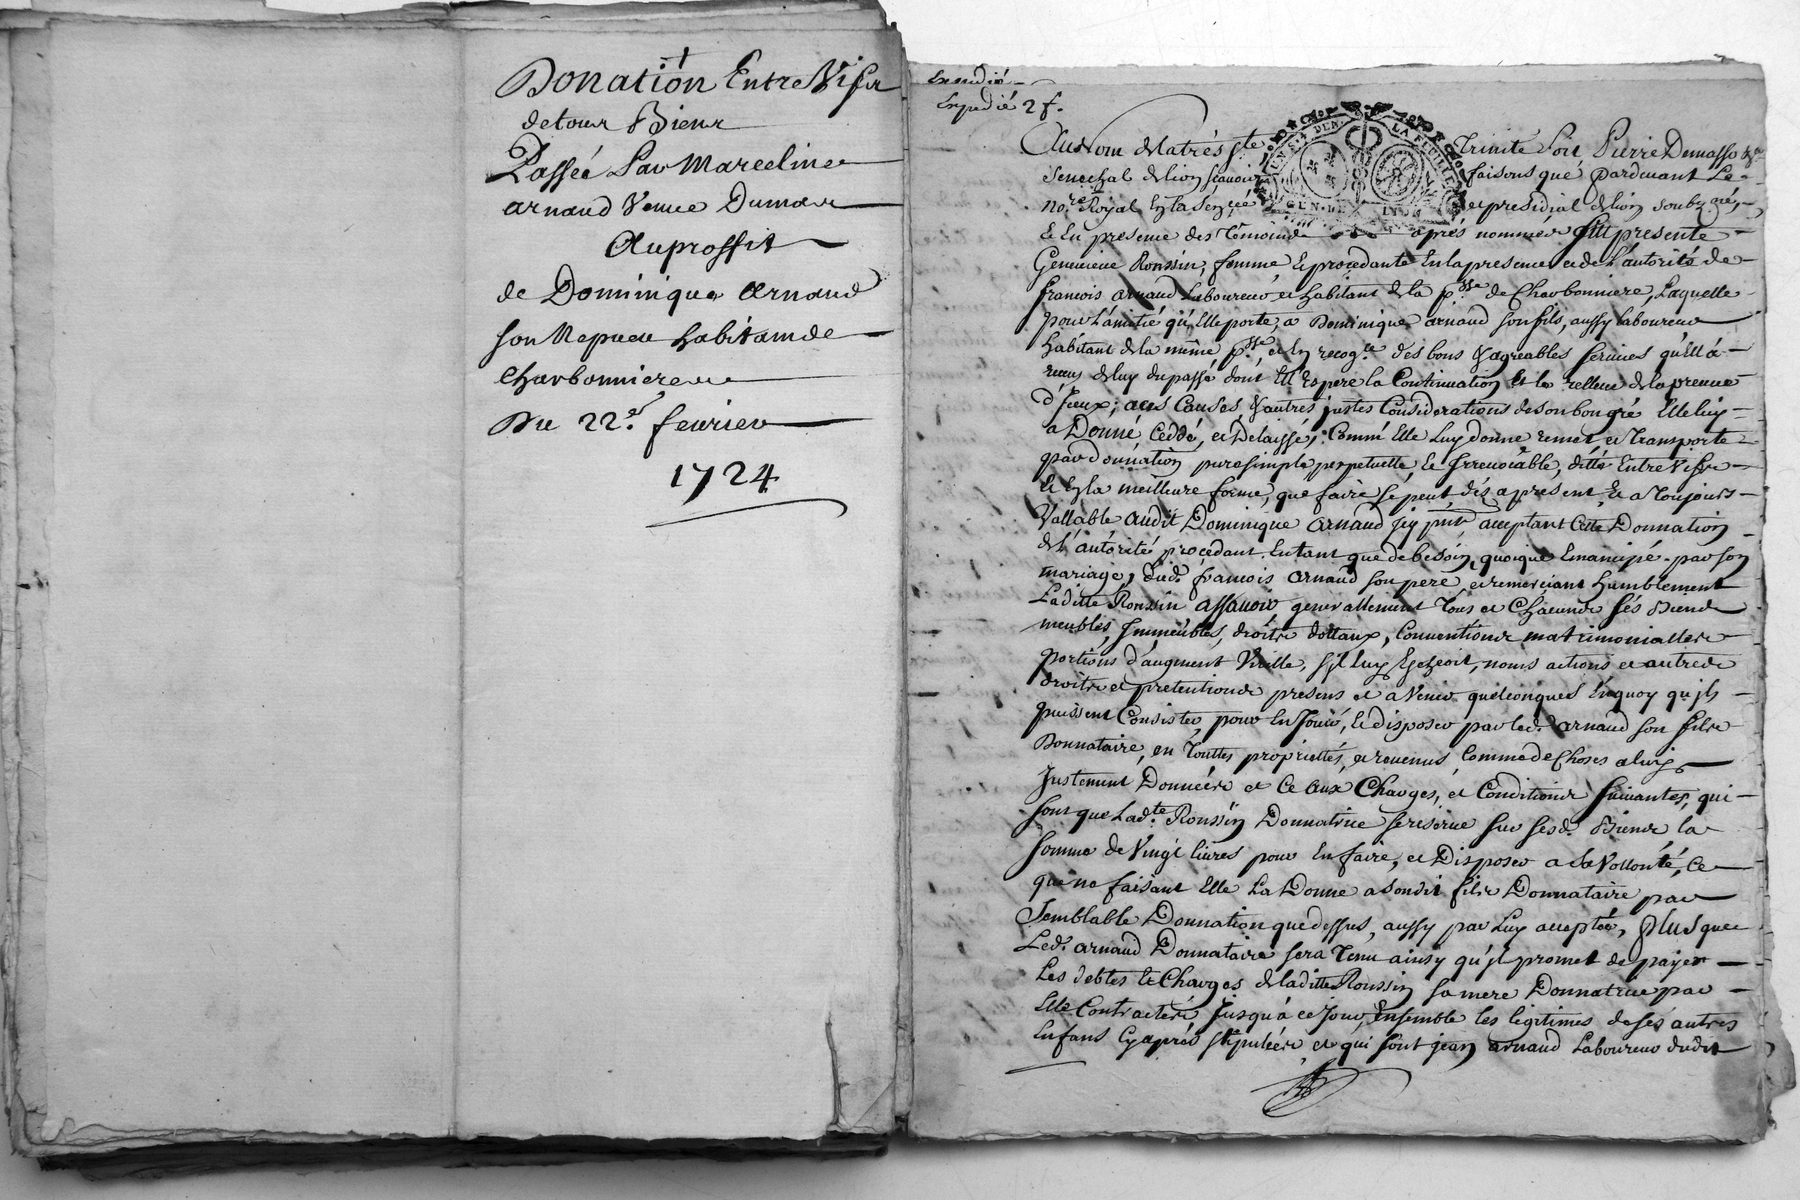 Donation Entre Vifs
de tous Biens
Passée Par Marceline
arnaud Veuve Dumas
Au proffit
de Dominique arnaud
son Nepueu habitam de
Charbonniere
Du 22e. feurier
1724
Expedié
Expedié 2 f.
Au Nom de la trés Ste Trinite Soit, Pierre Demasso
Senechal de lion scauoir faisons que pardeuant Le
nore. Royal En la Sencée et presidial de lion soubzné,
& En presence des Témoins aprés nommes fut presente
Geneuieue Roussin, femme & procedante En la presence et de L'autorité de
francois arnaud Laboureur et habitant de la psse de Charbonniere, Laquelle
pour L'amitié qu'Elle porte, a Dominique arnaud son fils, aussy laboureur
habitant de la même psse, et En recoge. des bons & agreables seruices qu'Ell'a
receus de luy du passé dont Ell'Espere la Continuation Et la relleue de la preuue
d'Jceux; a ces Causes, & autres justes Considerations de son bon gré Elle luy
a Donné, Ceddé, et Delaissé, Comm' Elle Luy donne remet et Transporte
par donnation pure simple perpetuelle, & Jrreuocable, ditte Entre Vifs
& En la meilleure forme, que faire se peut, dés a present, & a Toujours
Vallable audit Dominique arnaud jcy pnt. acceptant Cette Donnation
de L'autorité, procedant, En tant que de besoin, quoique Emancipé par son
mariage, dud. francois arnaud son pere, et remerciant humblement
Laditte Roussin assauoir generallement Tous et Chacuns sés Biens
meubles, Jmmeubles, droits dottaux, Conuentions matrimonialles
portions d'augment Virille, sy luy Echeoit, noms actions et autres
droits et pretentions presens et a Venir quelconques En quoy qu'jls
puissent Consister, pour En Jouir, & disposer par led. arnaud son fils
Donnataire, en Touttes proprietés, et reuenus, Comme de Choses a luy
Justement Données et Ce aux Charges, et Conditions suiuantes, qui
sont que Ladte. Roussin Donnatrice se reserue sur sesd. Biens, la
somme de Vingt liures pour En faire, et Disposer a sa Vollonté, Ce
que ne faisant Elle La Donne a sondit fils Donnataire par
Semblable Donnation que dessus, aussy par Luy acceptée, plus que
Led. arnaud Donnataire sera Tenu ainsy qu'jl promet de payer
Les debtes & Charges de laditte Roussin sa mere Donnatrice par
Elle Contractées Jusqu'á ce Jour, Ensemble les legitimes de sés autres
Enfans Cy aprés stipulées, et qui sont jean arnaud Laboureur dudit